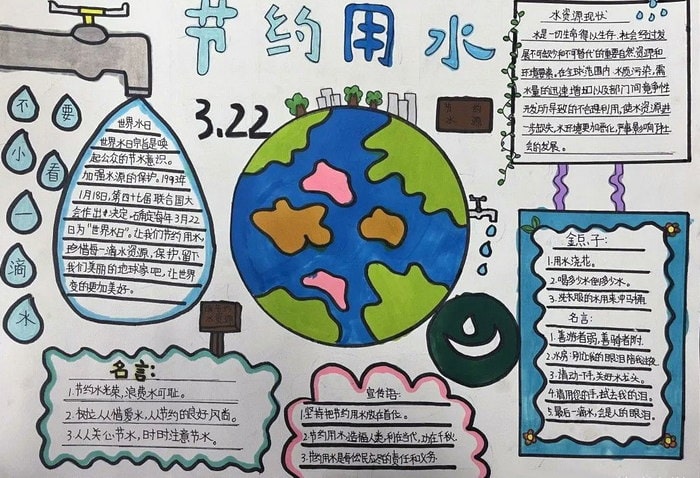 节约用水
3.22
不要小看一滴水
世界水日
世界水日宗旨是唤
起公众的节水意识。
加强水源的保护。1993年
1月18日,第四十七届联合国大
会作出决定,确定每年3月22
日为“世界水日”。让我们节约用水,
珍惜每一滴水资源,保护、留下
我们美丽的地球家吧,让世界
变的更加美好。
水资源现状
水是一切生命得以生存,社会经过发
展不可缺少和不可替代的重要自然资源和
环境要素。在全球范围内,水质污染,需
水量的迅速增加以及部门间竞争性
开发所导致的不合理利用,使水资源进
一步缺失,水环境更加恶化,严重影响了社
会的发展。
名言:
1.节约水光荣,浪费水可耻。
2.树立人人惜爱水,人人节约的良好风尚。
3.人人关心节水,时时注意节水。
宣传语:
1.坚持把节约用水放在首位。
2.节约用水,造福人类,利在当代,功在千秋。
3.节约用水是每位民应尽的责任和义务。
金点子:
1.用水浇花。
2.喝多少水倒多少水。
3.洗衣服的水用来冲马桶
名言:
1.善游者弱,善骑者附。
2.水房:别让我的眼泪陪我过夜
3.请动一下手,关好水龙头。
4.请用您的手,拭去我的泪。
5.最后一滴水,会是人的眼泪。